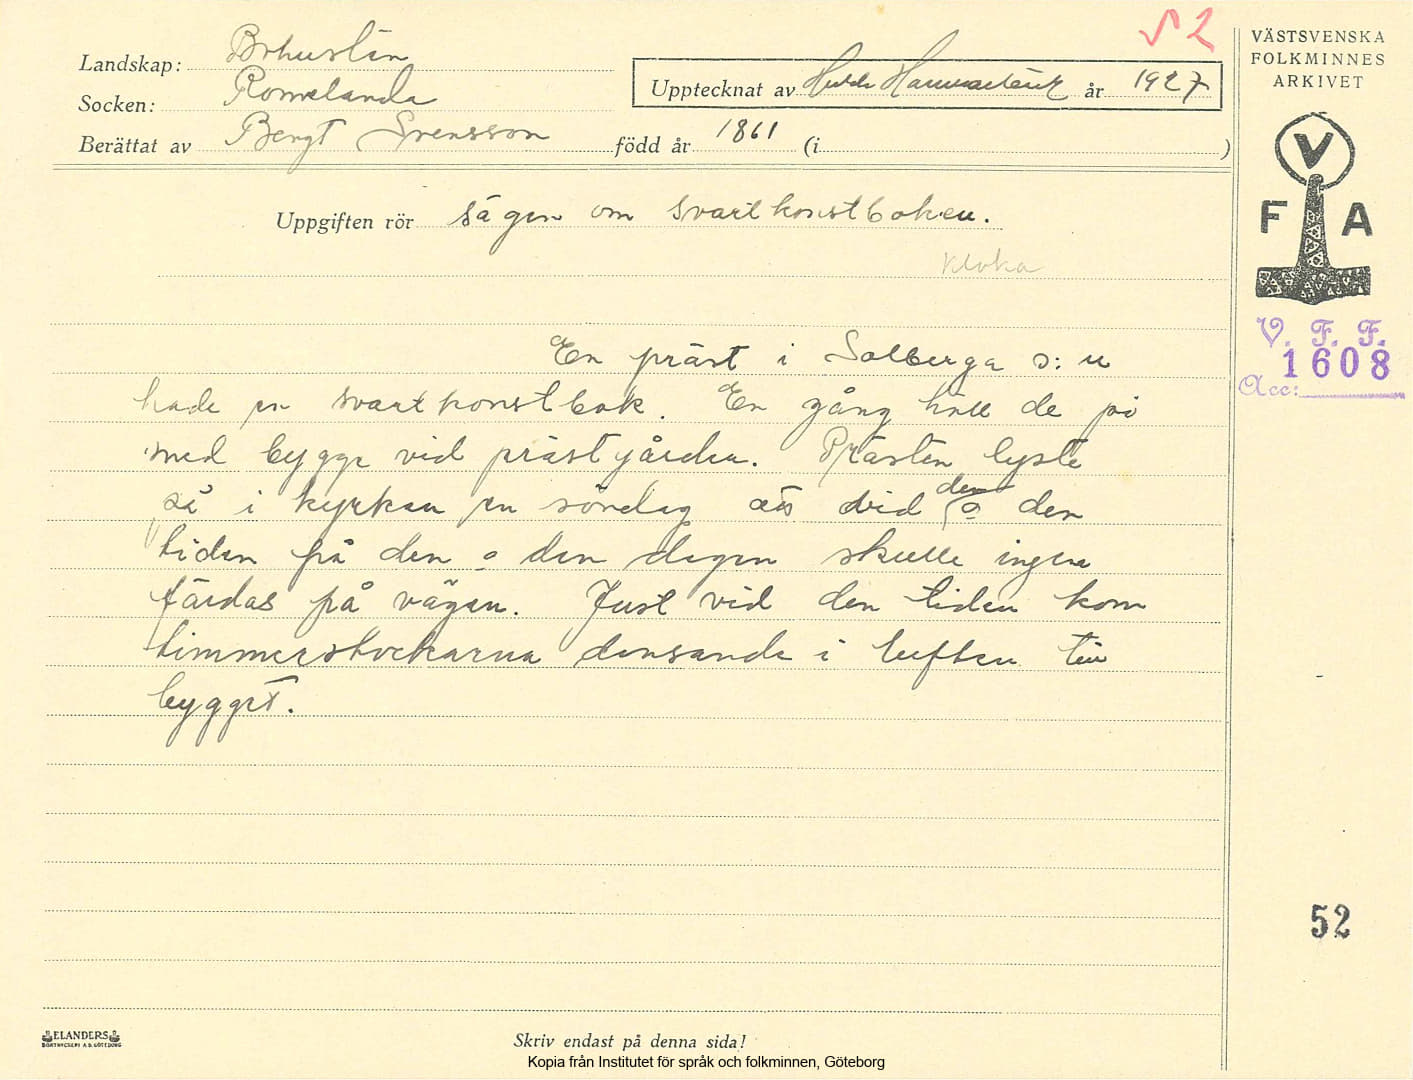 52
VÄSTSVENSKA
FOLKMINNES
ARKIVET
V
F A
V. F. F.
1608
Acc:
Landskap: Bohuslän
Socken: Romelanda
Berättat av Bengt Svensson född år 1861 (i )
Upptecknat av år 1927
Uppgiften rör sägen om svartkonstboken.
kloka
En präst i Solberga s:n
hade en svartkonstbok. En gång höll de på
med bygge vid prästgården. Prästen lyste
så i kyrkan en söndag att vid den o den
tiden på den o den dagen skulle ingen
färdas på vägen. Just vid den tiden kom
timmerstockarna dansande i luften till
bygget.
52
ELANDERS
BOKTRYCKERI A.B. GÖTEBORG
Skriv endast på denna sida!
Kopia från Institutet för språk och folkminnen, Göteborg